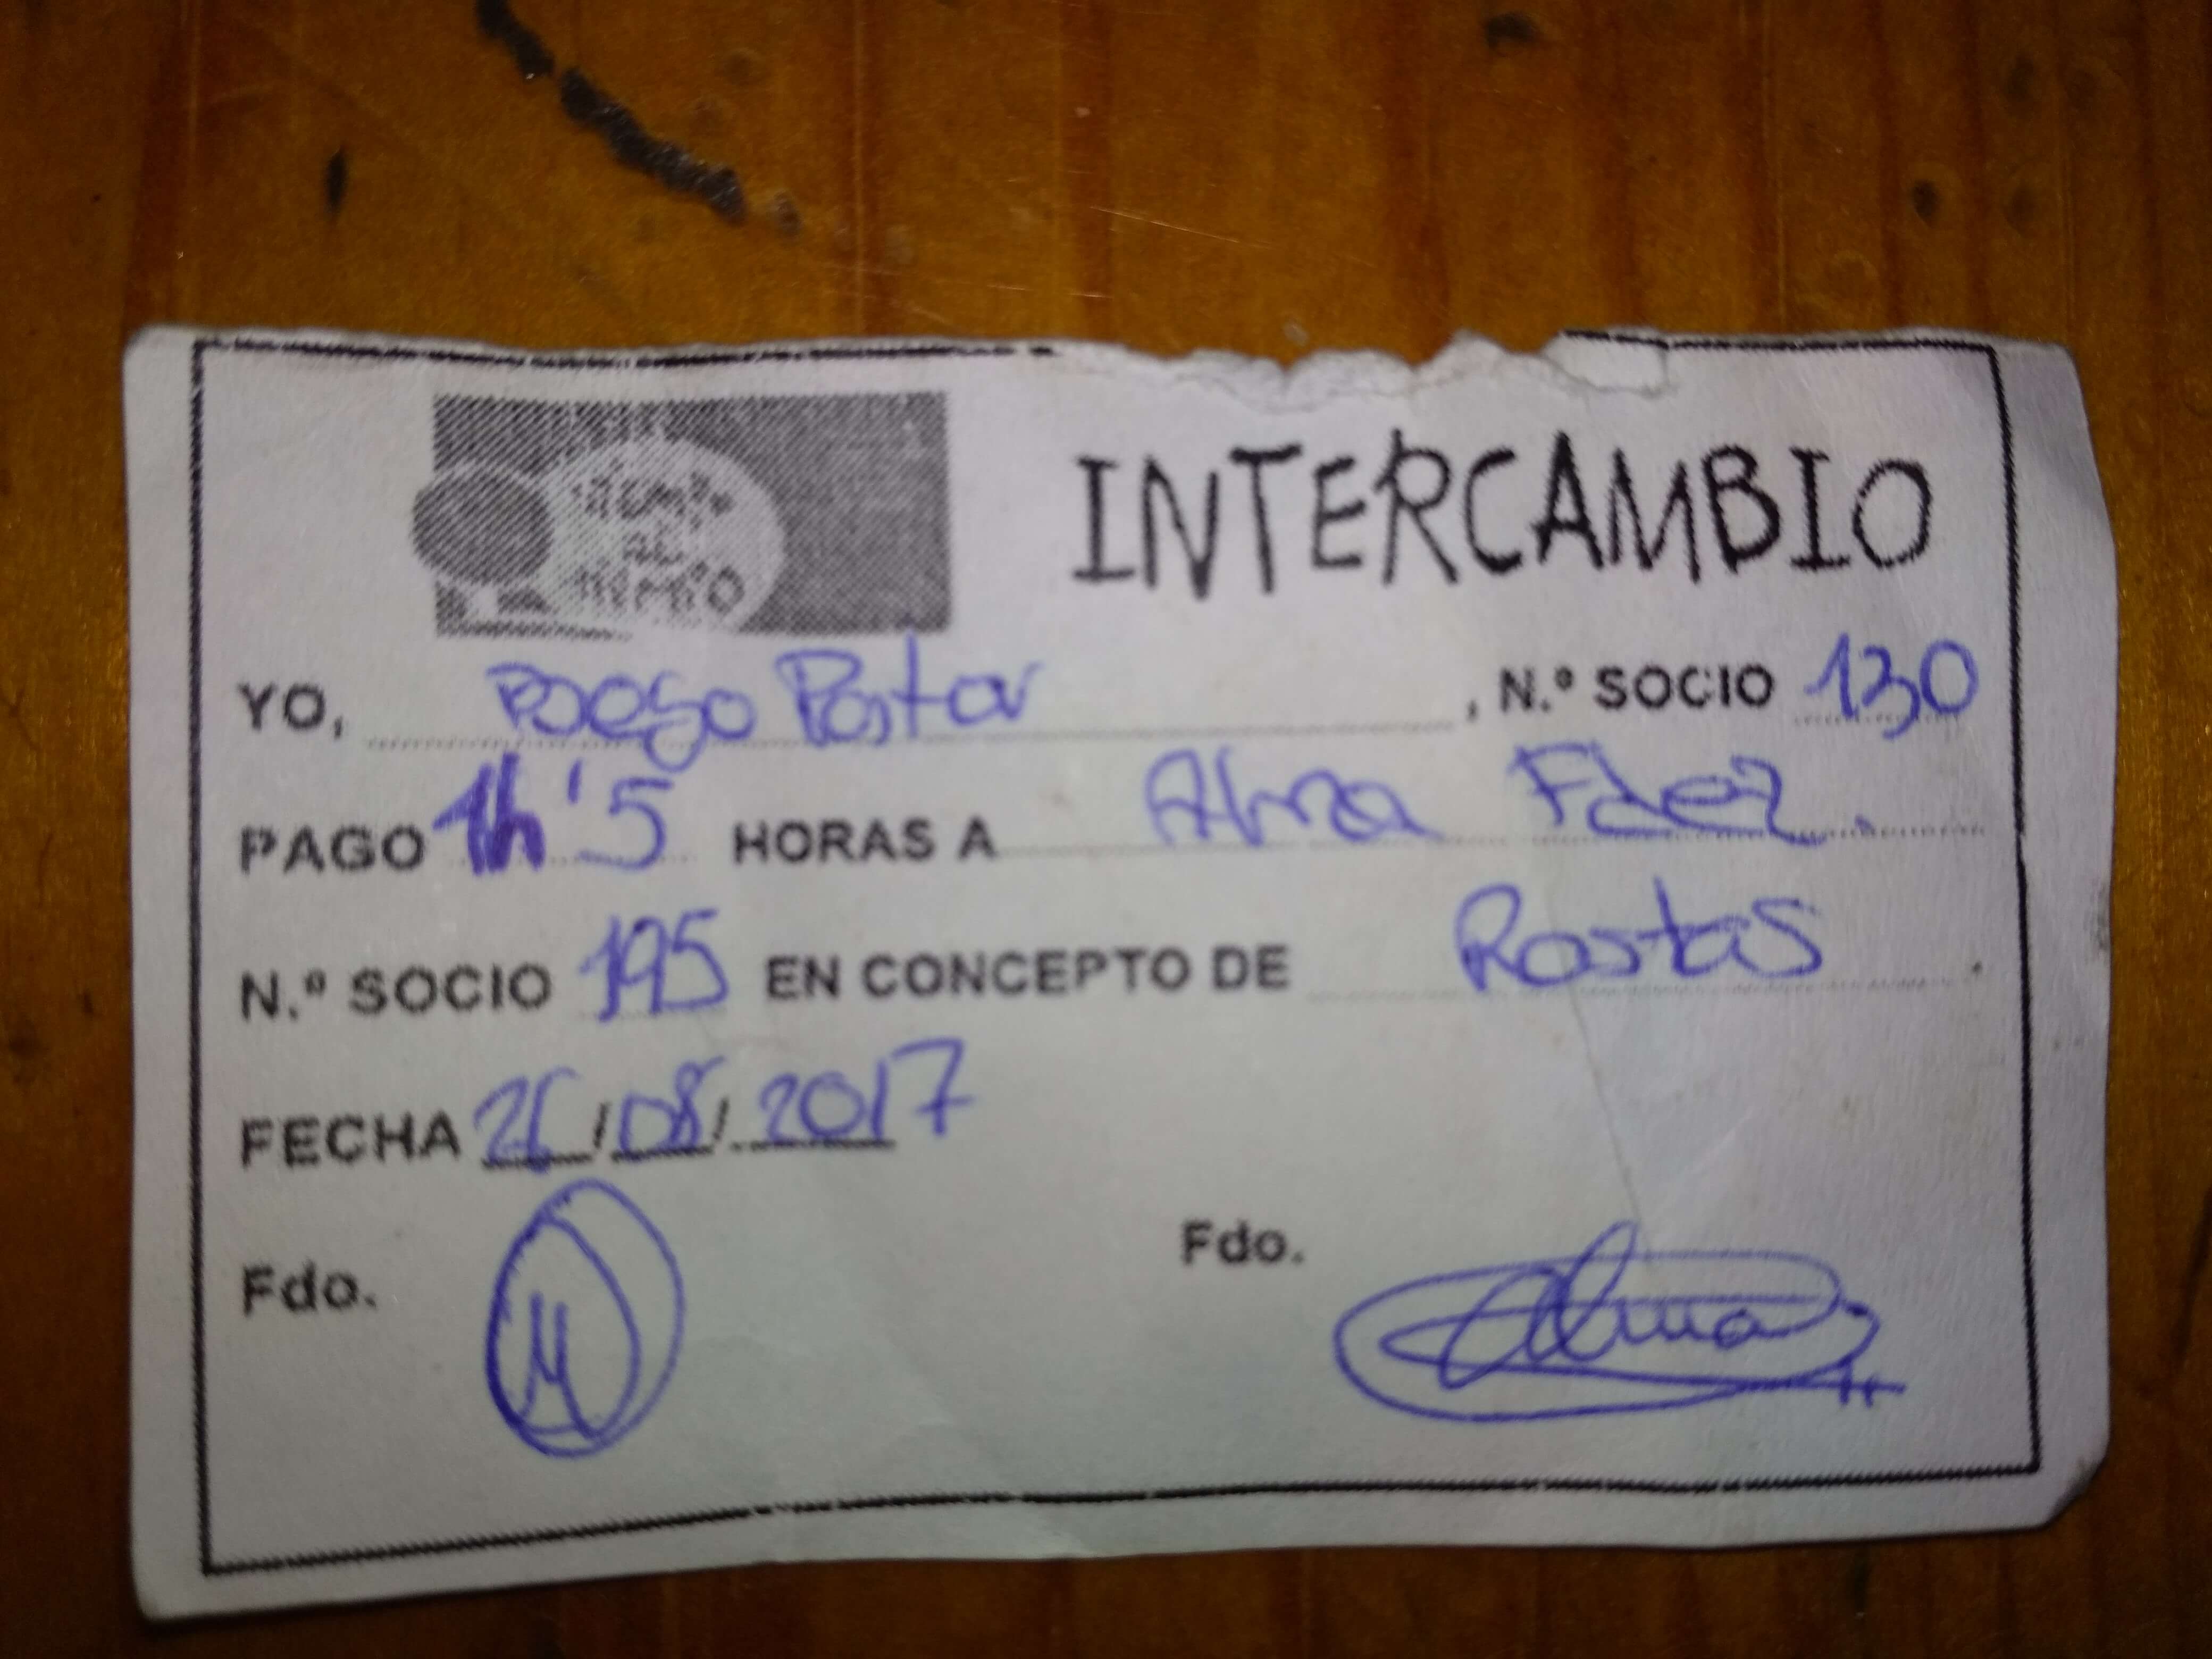 INTERCAMBIO
YO, Pastor, N.º SOCIO 130
PAGO 1h'5 HORAS A Alma Fdez.
N.º SOCIO 195 EN CONCEPTO DE Rastas.
FECHA 26/08/2017
Fdo. Fdo.
Alma